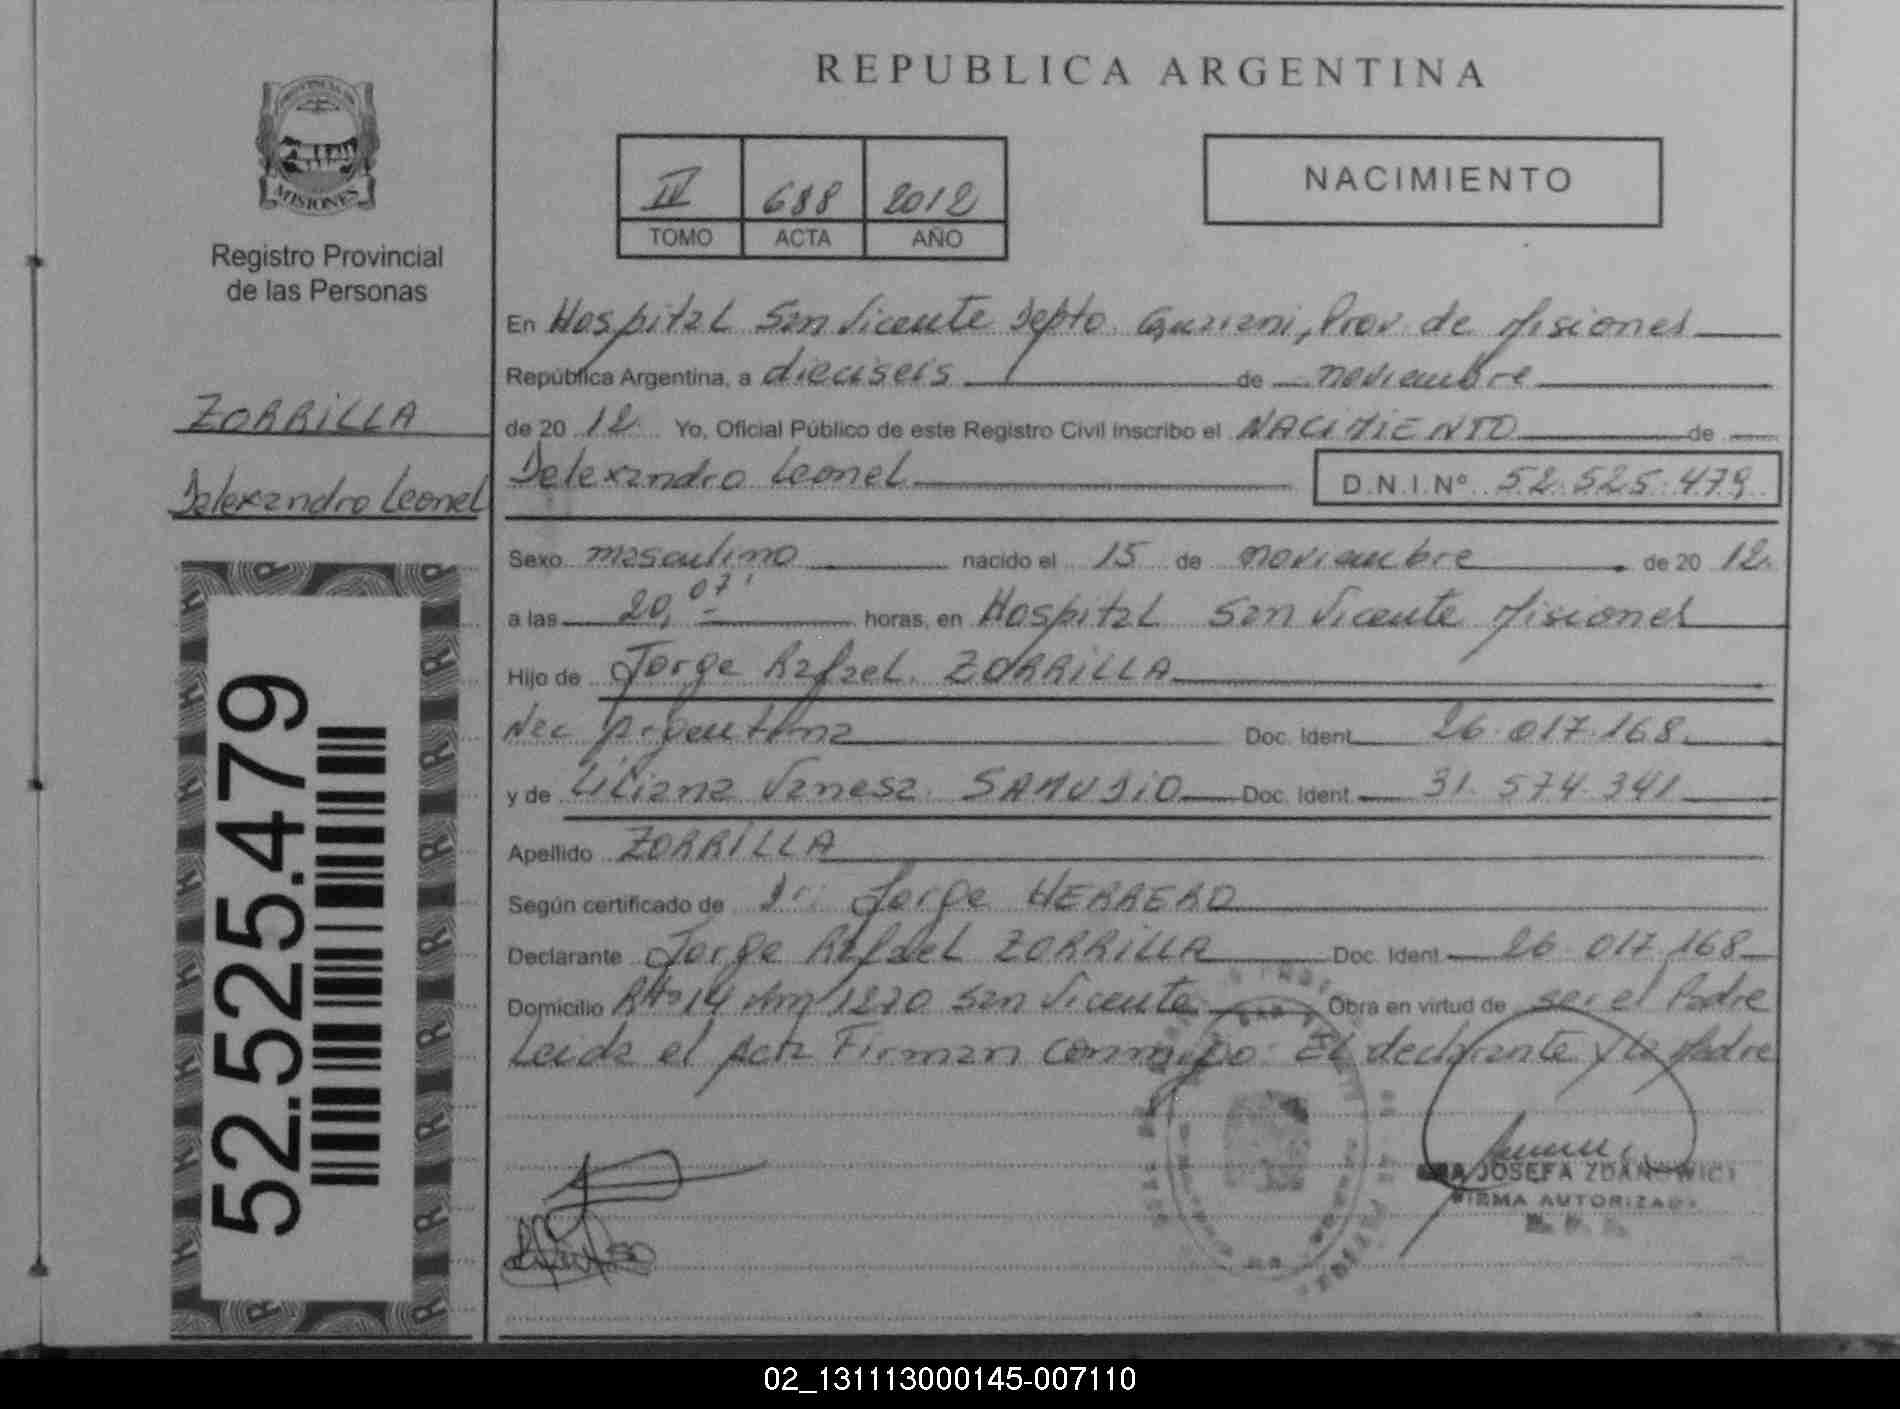 REPUBLICA ARGENTINA
MISIONES
Registro Provincial
de las Personas
IV 688 2012
TOMO ACTA AÑO
NACIMIENTO
ZORRILLA
Dalexandro Leonel
52.525.479
En Hospital San Vicente Depto. Guarani, Prov. de Misiones
República Argentina, a dieciseis de noviembre
de 20 12. Yo, Oficial Público de este Registro Civil inscribo el NACIMIENTO de
Delexandro Leonel D.N.I.Nº 52.525.479
Sexo masculino nacido el 15 de noviembre de 20 12.
a las 20,07' horas, en Hospital San Vicente Misiones
Hijo de Jorge Rafael ZORRILLA
Nac Argentina Doc. Ident. 26.017.168
y de Liliana Vanesa SAMUDIO Doc. Ident. 31.574.341
Apellido ZORRILLA
Según certificado de Dr. Jorge HERRERO
Declarante Jorge Rafael ZORRILLA Doc. Ident. 26.017.168
Domicilio Rta 14 Km 1270 San Vicente Obra en virtud de ser el Padre
Leida el Acta Firman conmigo: El declarante y la Madre
JOSEFA ZDANOWICZ
FIRMA AUTORIZADA
02_131113000145-007110